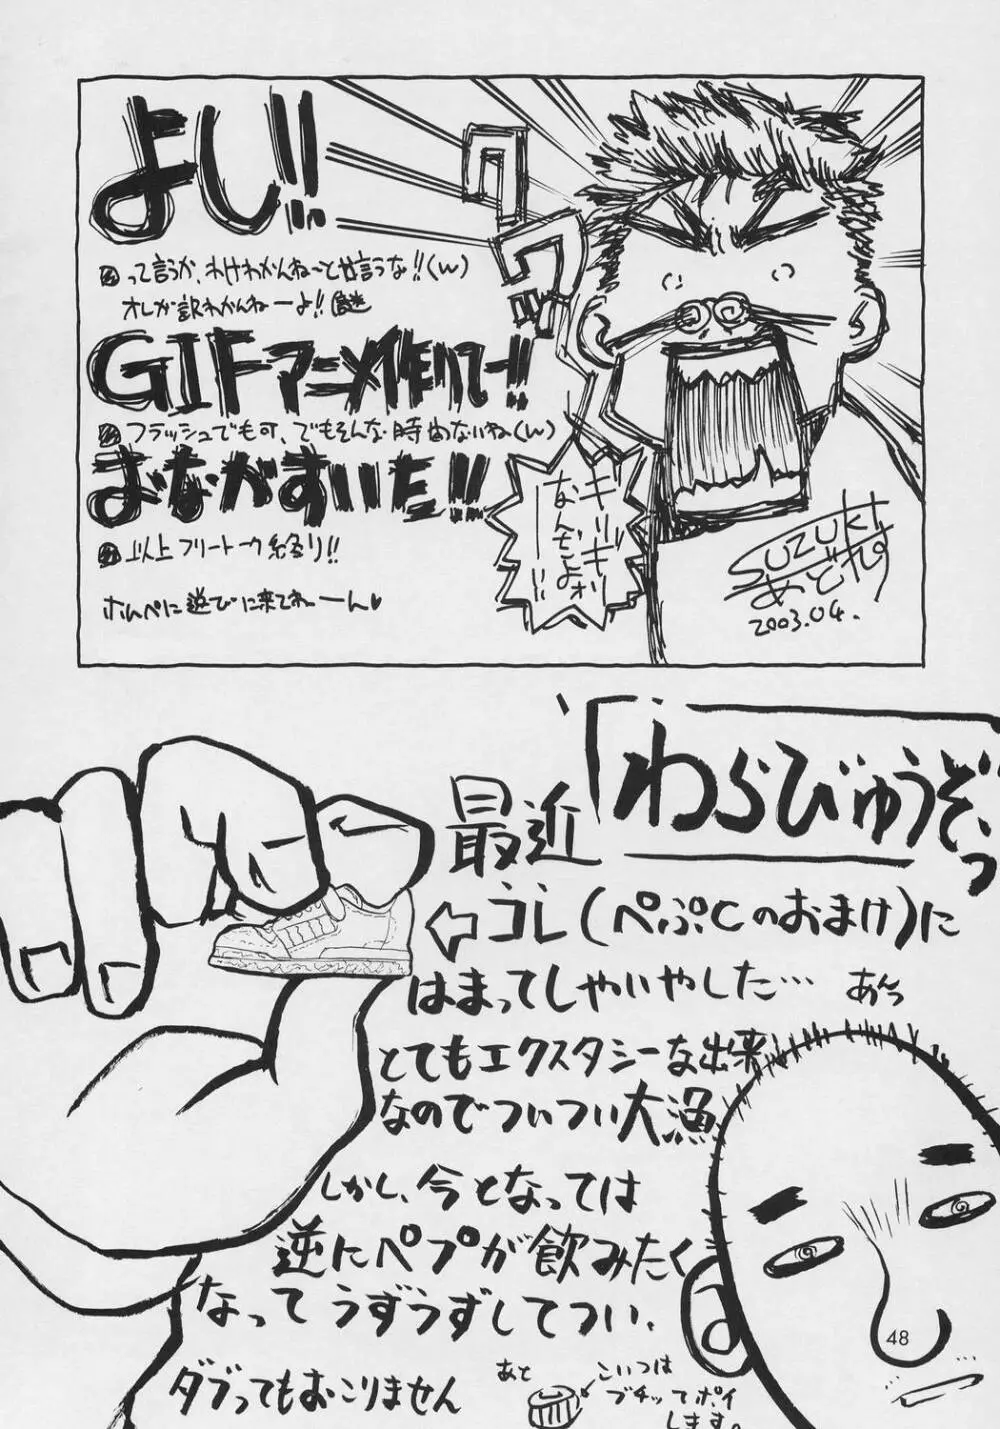 よし!!
って言うか、わけわかんねーと言うな!!(w)
オレが訳わかんねーよ!!謎
GIFアニメ作りてー!!
フラッシュでも可、でもそんな時間ないね(w)
おなかすいた!!!
以上フリートーク終り!!
ホムペに遊びに来てねーーん♥
ワワ!!
なんだよォ
SUZUKI
あどれす
2003.04.
「わらびゅうぞっ
最近
コレ(ぺぷCのおまけ)に
はまってしゃいやした…
あんっ
とてもエクスタシーな出来
なのでついつい大漁
しかし、今となっては
逆にペプが飲みたく
なってうずうずしてつい、
ダブってもおこりません
あと
こいつは
ブチッてポイ
します。
48